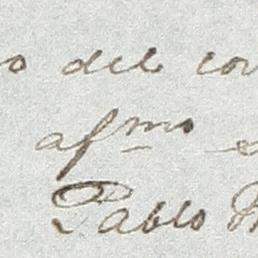 o del cor
afmo
Pablo